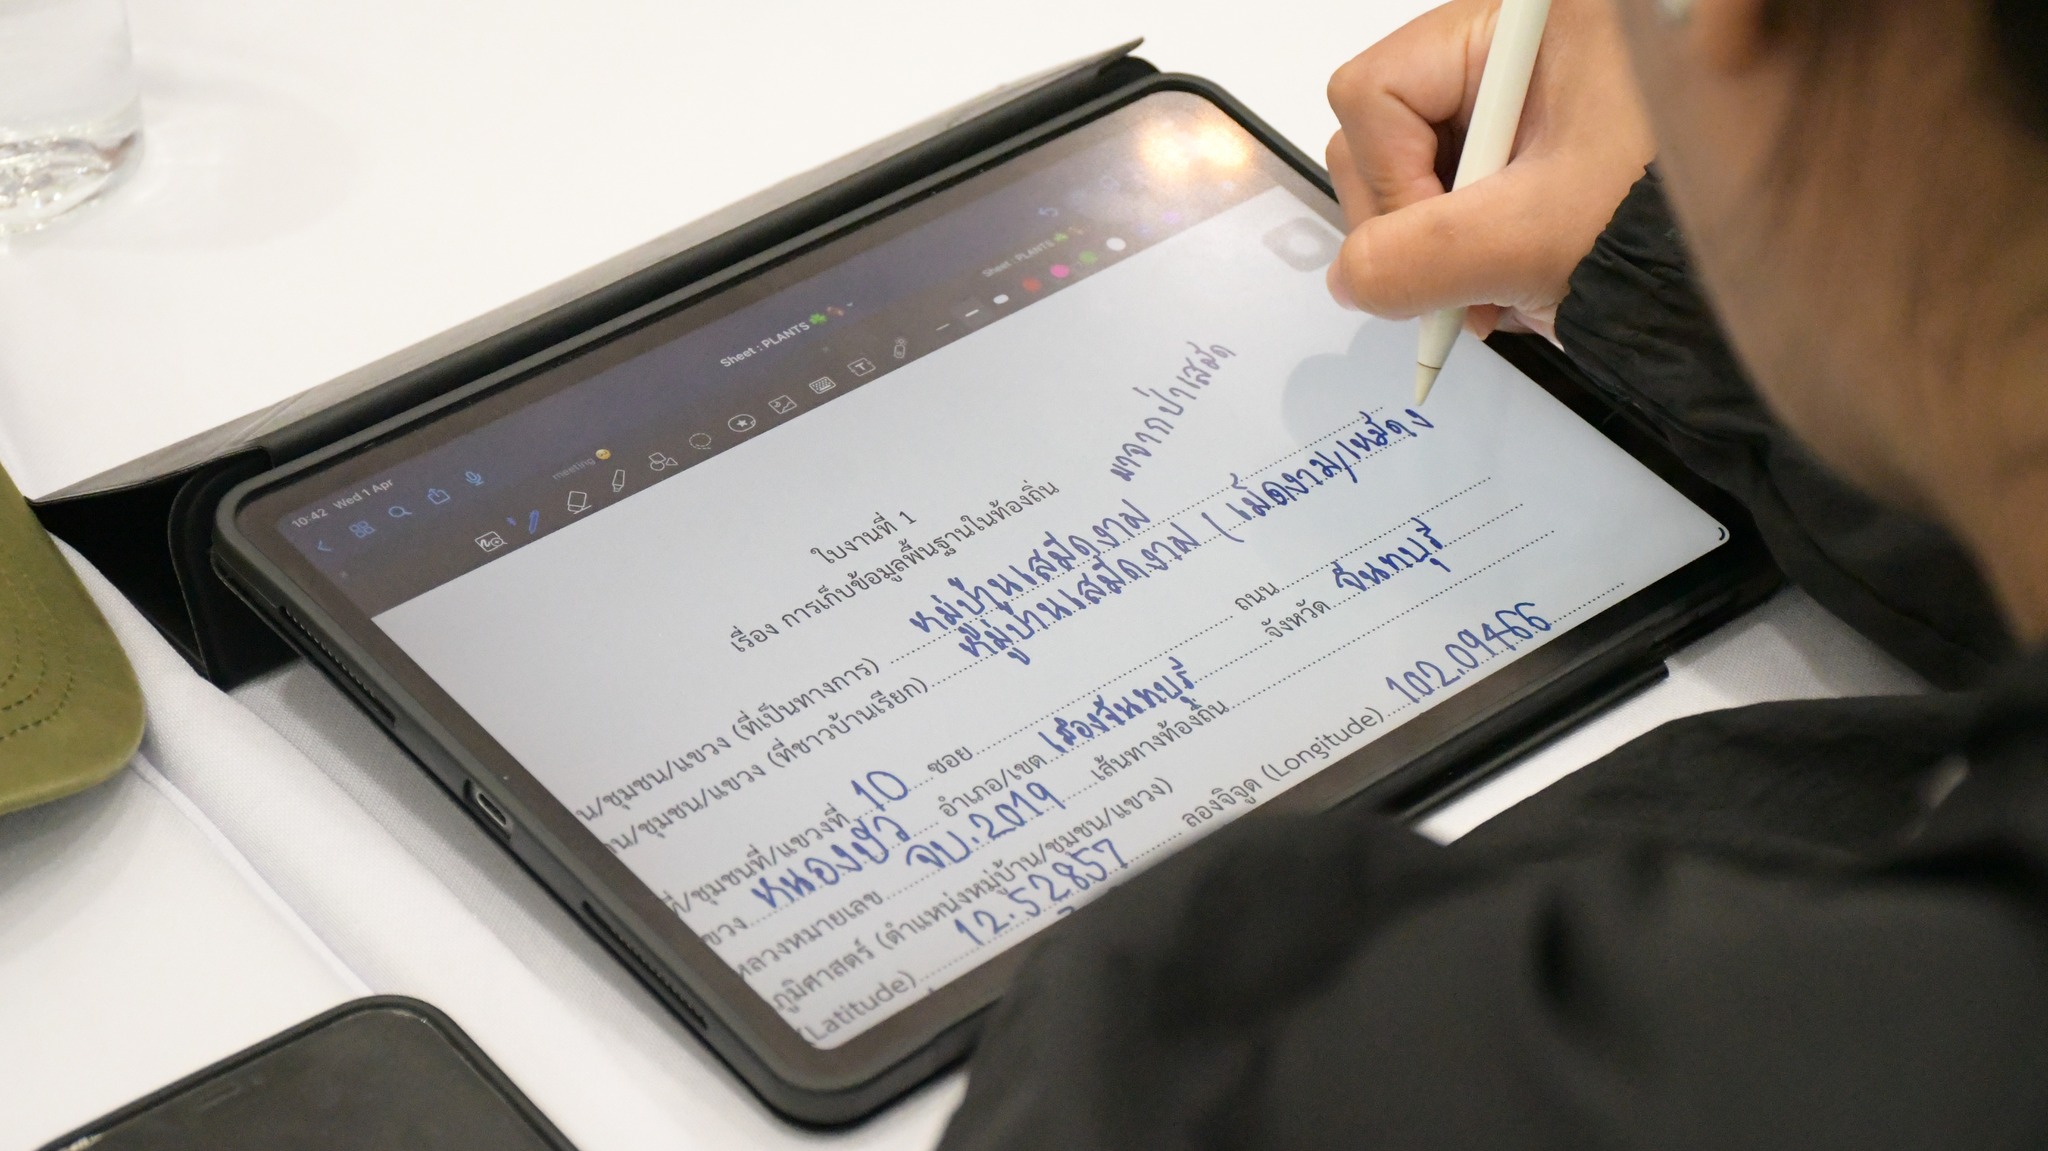 10:42 Wed 1 Apr
Sheet : PLANTS
Sheet : PLANTS
meeting
ใบงานที่ 1
เรื่อง การเก็บข้อมูลพื้นฐานในท้องถิ่น
มาจากป่าเสม็ด
น/ชุมชน/แขวง (ที่เป็นทางการ) หมู่บ้านเสม็ดงาม
าน/ชุมชน/แขวง (ที่ชาวบ้านเรียก) หมู่บ้านเสม็ดงาม (เม็ดงาม/เหม็ดง
ที่/ชุมชนที่/แขวงที่ 10 ซอย ถนน
ขวง หนองบัว อำเภอ/เขต เมืองจันทบุรี จังหวัด จันทบุรี
หลวงหมายเลข จบ.2019 เส้นทางท้องถิ่น
ภูมิศาสตร์ (ตำแหน่งหมู่บ้าน/ชุมชน/แขวง)
(Latitude) 12.52857 ลองจิจูด (Longitude) 102.09466